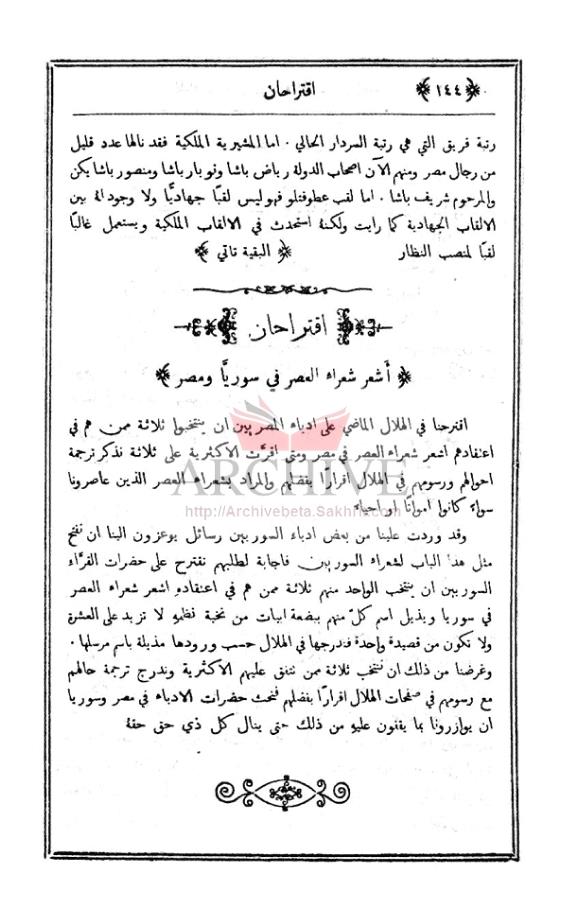 ﴿١٤٤﴾ اقتراحان
رتبة فريق التي هي رتبة السردار الحالي . اما المشيرية الملكية فقد نالها عدد قليل
من رجال مصر ومنهم الآن اصحاب الدولة رياض باشا ونوبار باشا ومنصور باشا يكن
والمرحوم شريف باشا . اما لقب عطوفتلو فهو ليس لقبًا جهاديًّا ولا وجود له بين
الالقاب الجهادية كما رايت ولكنهُ استحدث في الالقاب الملكية ويستعمل غالبًا
لقبًا لمنصب النظار ﴿ البقية تاتي ﴾
اقتراحان
﴿ أَشعر شعراء العصر في سوريَّا ومصر ﴾
اقترحنا في الهلال الماضي على ادباء المصريين ان ينتخبوا ثلاثة ممن هم في
اعتقادهم اشعر شعراء العصر في مصر ومتى اقرَّت الاكثرية على ثلاثة نذكر ترجمة
احوالهم ورسومهم في الهلال اقرارًا بفضلهم والمراد بشعراء العصر الذين عاصرونا
سواءً كانوا امواتًا او احياء
ARCHIVE
http://Archivebeta.Sakhrit.com
وقد وردت علينا من بعض ادباء السوريين رسائل يوعزون الينا ان نفتح
مثل هذا الباب لشعراء السوريين فاجابة لطلبهم نقترح على حضرات القرَّاء
السوريين ان ينتخب الواحد منهم ثلاثة ممن هم في اعتقادهِ اشعر شعراء العصر
في سوريا ويذيل اسم كلّ منهم ببضعة ابيات من نخبة نظمهِ لا تزيد على العشرة
ولا تكون من قصيدة واحدة فندرجها في الهلال حسب ورودها مذيلة باسم مرسلها .
وغرضنا من ذلك ان ننتخب ثلاثة ممن نتفق عليهم الاكثرية وندرج ترجمة حالهم
مع رسومهم في صفحات الهلال اقرارًا بفضلهم فنحث حضرات الادباء في مصر وسوريا
ان يوازرونا بما يقفون عليهِ من ذلك حتى ينال كل ذي حق حقهُ